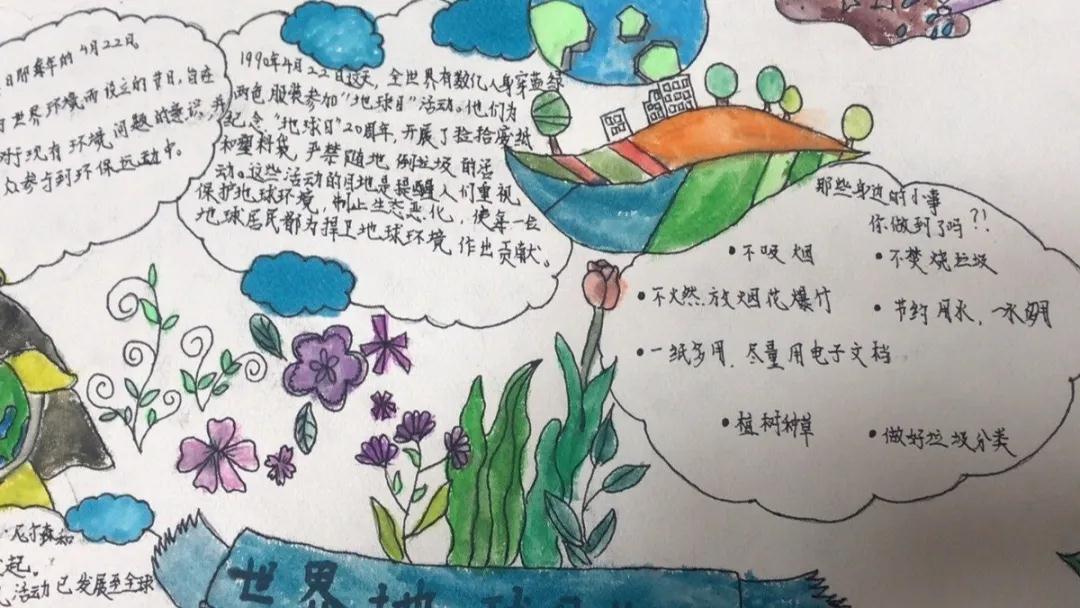 日即每年的4月22日
世界环境而设立的节日,旨在
对于现有环境问题的意识,并
众参与到环保运动中。
1990年4月22日这天,全世界有数亿人身穿蓝绿
两色服装参加“地球日”活动。他们为
纪念“地球日”20周年,开展了捡拾废纸
和塑料袋,严禁随地倒垃圾的活
动。这些活动的目地是提醒人们重视
保护地球环境,制止生态恶化,使每一位
地球居民都为捍卫地球环境作出贡献。
那些身边的小事
你做到了吗?!
•不吸烟
•不焚烧垃圾
•不燃放烟花爆竹
•节约用水,一水多用
•一纸多用.尽量用电子文档
•植树种草
•做好垃圾分类
·尼尔森和
起。
活动已发展至全球
世界地球日